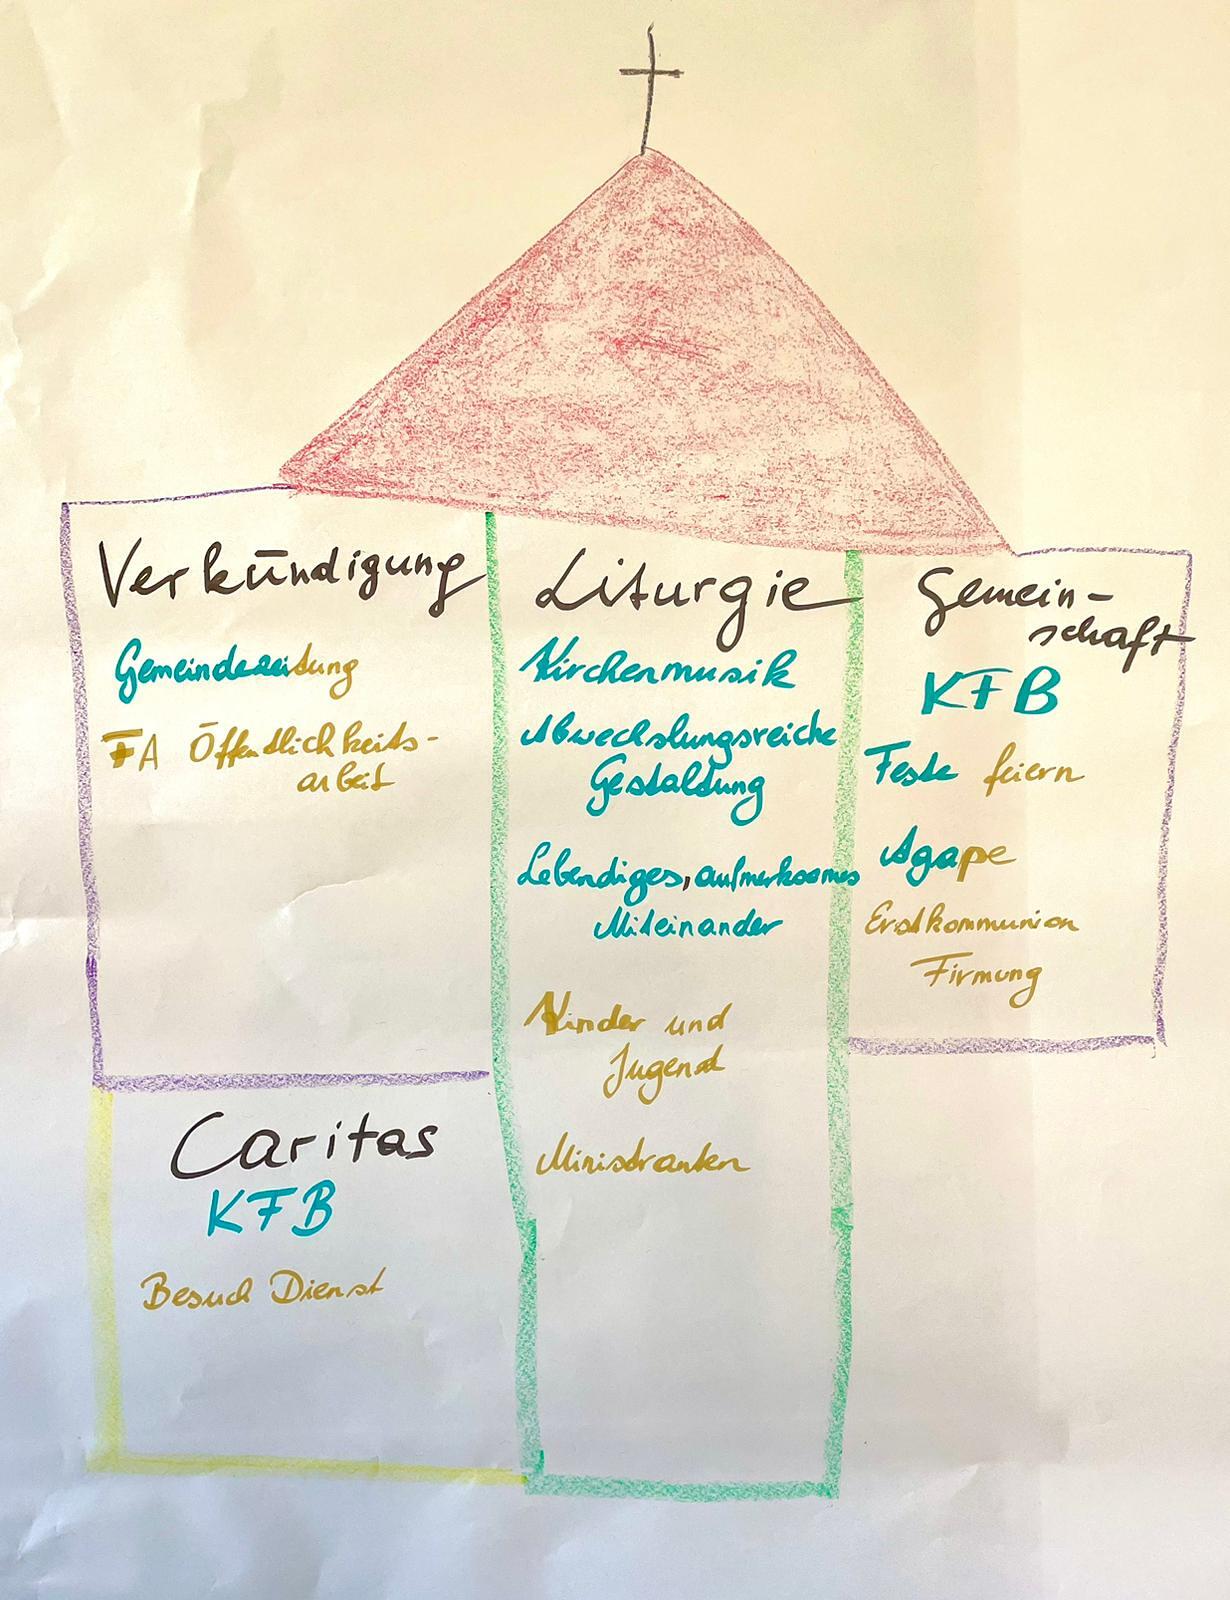 Verkündigung
Gemeindezeitung
FA Öffentlichkeits-
arbeit
Caritas
KFB
Besuch Dienst
Liturgie
Kirchenmusik
Abwechslungsreiche
Gestaltung
Lebendiges, aufmerksames
Miteinander
Kinder und
Jugend
Ministranten
Gemein-
schaft
KFB
Feste feiern
Agape
Erstkommunion
Firmung